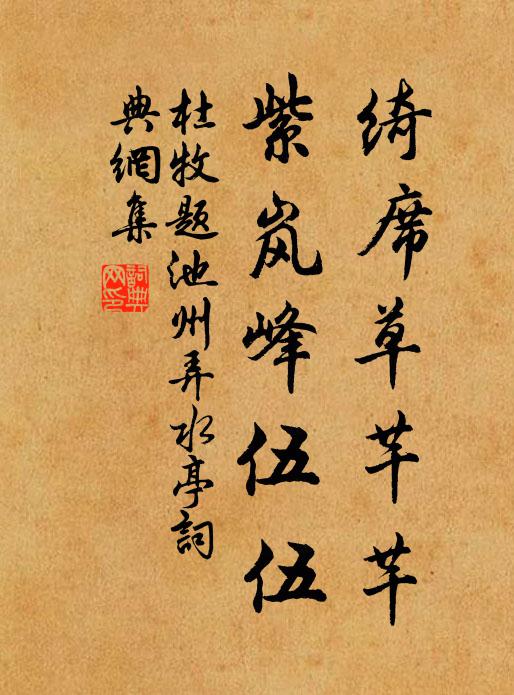 绮席草芊芊
紫岚峰伍伍
杜牧题池州弄水亭詞
典網集
詞典
网印